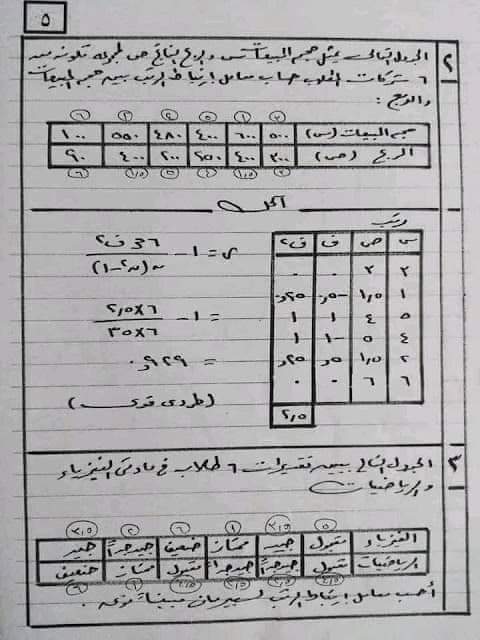 ٥
٢ الجدول التالى يمثل حجم المبيعات س والربح الناتج ص لمجموعة تكونه من
٦ شركات المطلوب حساب معامل إرتباط الرتب بين حجم المبيعات
والربح :
٣ ١ ٥ ٤ ٢ ٦
حجم المبيعات (س) ٥٠٠ ٦٠٠ ٤٠٠ ٤٨٠ ٥٥٠ ١٠٠
الربح (ص) ٣٠٠ ٤٠٠ ٢٥٠ ٢٠٠ ٤٠٠ ٩٠
٣ ١,٥ ٤ ٥ ١,٥ ٦
الحل
رتب
س ص ف ف٢
٣ ٣ ٠ ٠
١ ١,٥ -٠,٥ ٠,٢٥
٥ ٤ ١ ١
٤ ٥ -١ ١
٢ ١,٥ ٠,٥ ٠,٢٥
٦ ٦ ٠ ٠
٢,٥
ر = ١ - ٦ مجـ ف٢ / ن(ن٢-١)
= ١ - ٦×٢,٥ / ٦×٣٥
= ٠,٩٢٩
(طردى قوى)
٣ الجدول التالى يبين تقديرات ٦ طلاب فى مادتى الفيزياء
والرياضيات
٥ ٣,٥ ١ ٦ ٢ ٣,٥
الفيزياء مقبول جيد ممتاز ضعيف جيد جداً جيد
الرياضيات مقبول جيد جداً جيد جداً مقبول ممتاز ضعيف
٤,٥ ٢,٥ ٢,٥ ٤,٥ ١ ٦
أحسب معامل إرتباط الرتب لسبيرمان مبيناً نوعه .